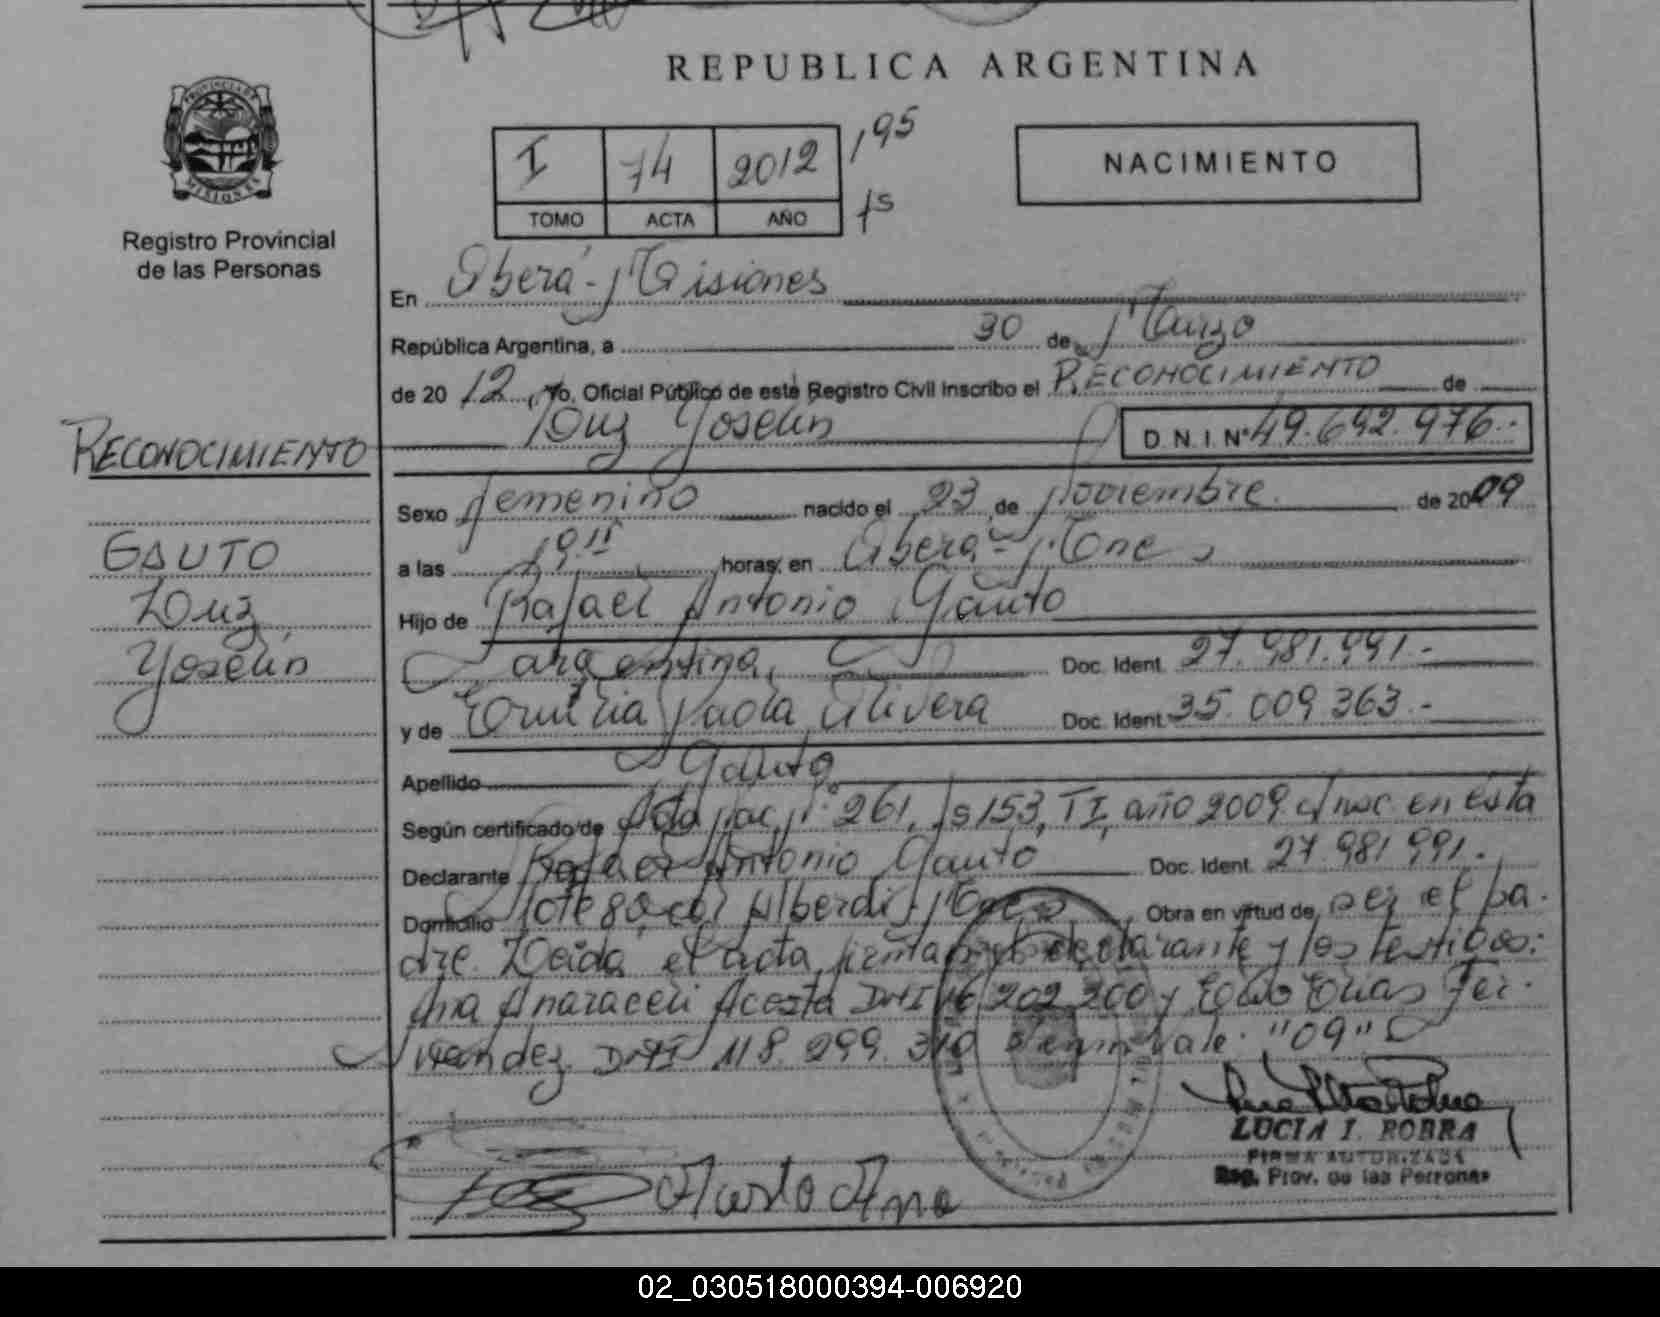 REPUBLICA ARGENTINA
PROVINCIA DE MISIONES
Registro Provincial
de las Personas
I 74 2012 195
TOMO ACTA AÑO fs
NACIMIENTO
En Oberá - Misiones
República Argentina, a 30 de Marzo
de 2012, Yo, Oficial Público de este Registro Civil Inscribo el RECONOCIMIENTO de
Luz Yoselin D.N.I Nº 49.692.976.-
RECONOCIMIENTO
GAUTO
Luz
Yoselin
Sexo femenino nacido el 23 de Noviembre de 2009
a las 19 horas, en Oberá - Mnes
Hijo de Rafael Antonio Gauto
argentina, Doc. Ident. 27.981.991.-
y de Emilia Paola Olivera Doc. Ident. 35.009.363.-
Apellido Gauto
Según certificado de Acta Nac. Nº 261, fs 153, TI, año 2009 c/nac. en ésta
Declarante Rafael Antonio Gauto Doc. Ident. 27.981.991.-
Domicilio Lote col Alberdi, Mnes Obra en virtud de ser el pa-
dre. Leida el acta, firman el declarante y los testigos:
Ana Anaraceli Acosta DNI 202.200 y Elias Fer-
nandez DNI 18.299. vale: "09"
Acosta Ana
LUCIA I. ROBRA
FIRMA AUTORIZADA
Reg. Prov. de las Personas
02_030518000394-006920